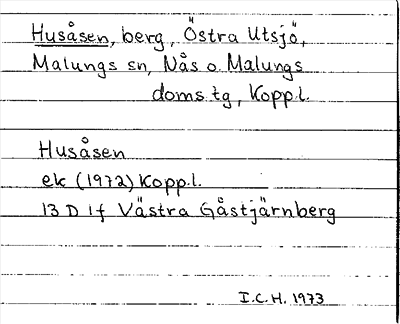 Husåsen, berg, Östra Utsjö,
Malungs sn, Nås o. Malungs
doms. tg, Koppl.
Husåsen
ek (1972) Koppl.
13 D 1f Västra Gåstjärnberg
I.C.H. 1973